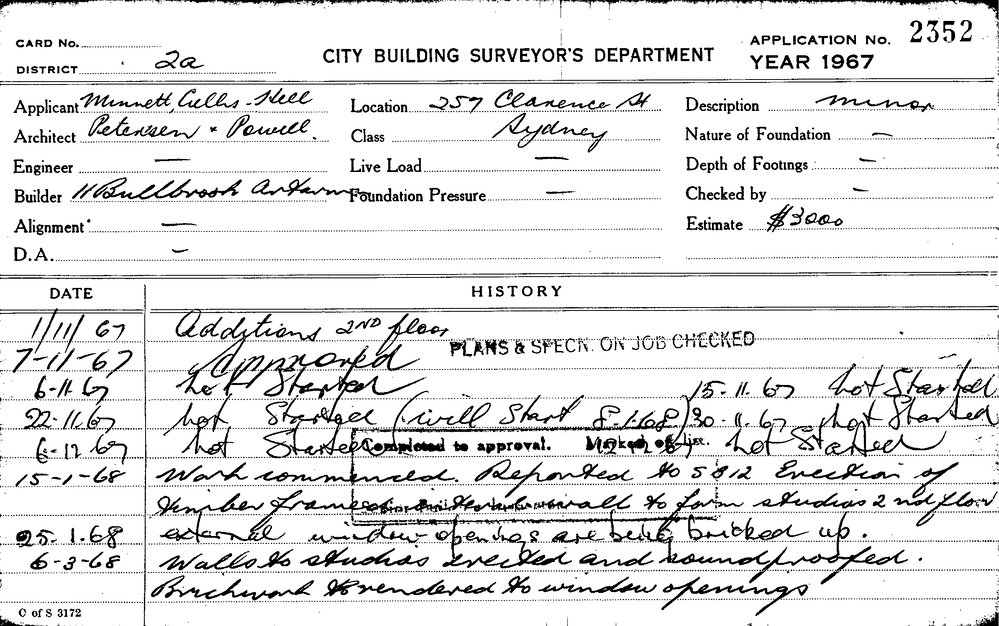 CARD No. APPLICATION No. 2352
DISTRICT 2a CITY BUILDING SURVEYOR'S DEPARTMENT YEAR 1967
Applicant Minnett, Cullis-Hill Location 257 Clarence St Description minor
Architect Petersen & Powell. Class Sydney Nature of Foundation —
Engineer — Live Load — Depth of Footings —
Builder H Bullbrook Foundation Pressure — Checked by —
Alignment — Estimate $3000
D.A. —
DATE HISTORY
1/11/67 Additions 2ND floor
7-11-67 Approved PLANS & SPECN. ON JOB CHECKED
6-11-67 not Started 15.11.67 not Started
22-11-67 not Started (will start 8-1-68) 30.11.67 not Started
6-12-67 not Started 12-12-67 not Started
Completed to approval. Marked off list.
15-1-68 Work commenced. Reported to S012 Erection of
timber frame wall to form studios 2nd floor
25.1.68 external window openings are being bricked up.
6-3-68 Walls to studios erected and soundproofed.
Brickwork to rendered to window openings
C of S 3172